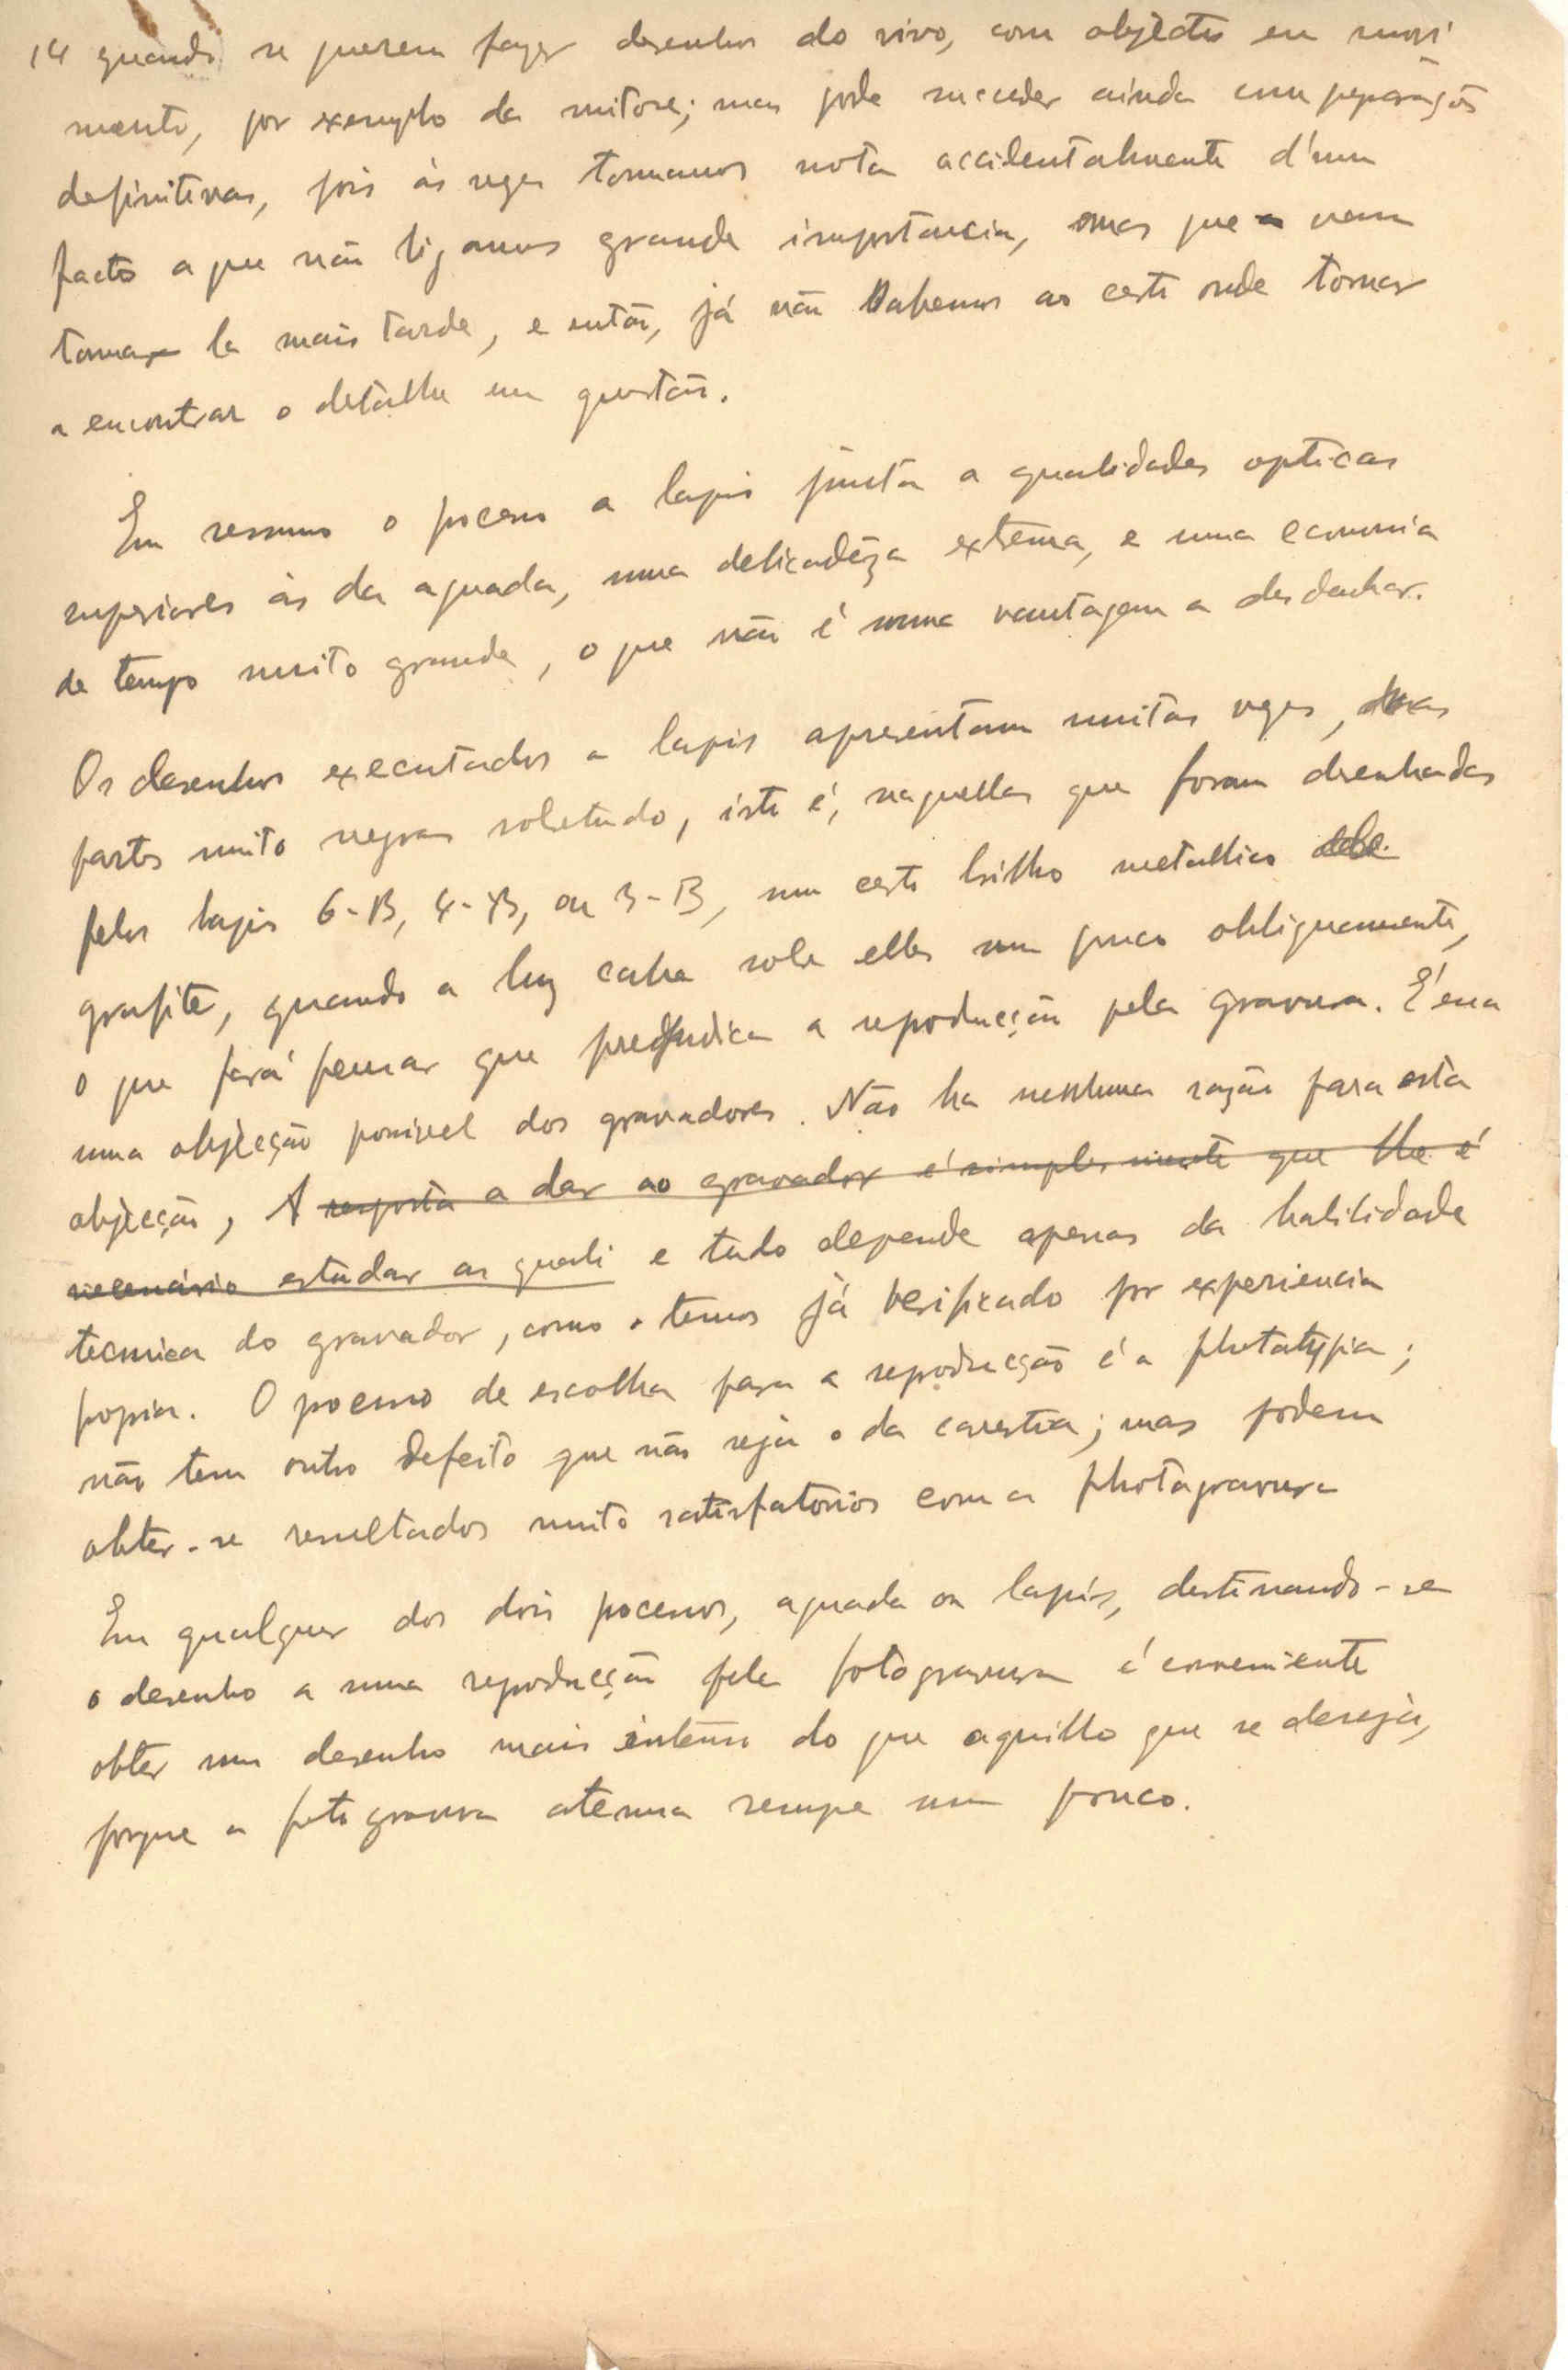 14 quando se querem fazer desenhos do vivo, com objectos em movi
mento, por exemplo da mitose; mas pode succeder ainda com preparações
definitivas, pois ás vezes tomamos nota accidentalmente d'um
facto a que não ligamos grande importancia, mas que vem
tomar la mais tarde, e então, já não sabemos ao certo onde tornar
a encontrar o detalhe em questão.
Em resumo o processo a lapis junta a qualidades opticas
superiores ás da aguada, uma delicadêza extrema, e uma economia
de tempo muito grande, o que não é uma vantagem a desdenhar.
Os desenhos executados a lapis apresentam muitas vezes, nas
partes muito negras sobretudo, isto é, naquellas que foram desenhadas
pelos lapis 6-B, 4-B, ou 3-B, um certo brilho metallico
grafite, quando a luz cahe sobre elles um pouco obliquamente,
o que fará pensar que prejudica a reproducção pela gravura. É essa
uma objecção possivel dos gravadores. Não ha nenhuma razão para esta
objecção, A resposta a dar ao gravador é simplesmente que lhe é
necessário estudar as quali e tudo depende apenas da habilidade
tecnica do gravador, como o temos já verificado por experiencia
propria. O processo de escolha para a reproducção é a phototypia;
não tem outro defeito que não seja o da carestia; mas podem
obter-se resultados muito satisfatórios com a photogravura
Em qualquer dos dois processos, aguada ou lapis, destinando-se
o desenho a uma reproducção pela fotogravura é conveniente
obter um desenho mais intenso do que aquillo que se deseja,
porque a fotogravura atenua sempre um pouco.